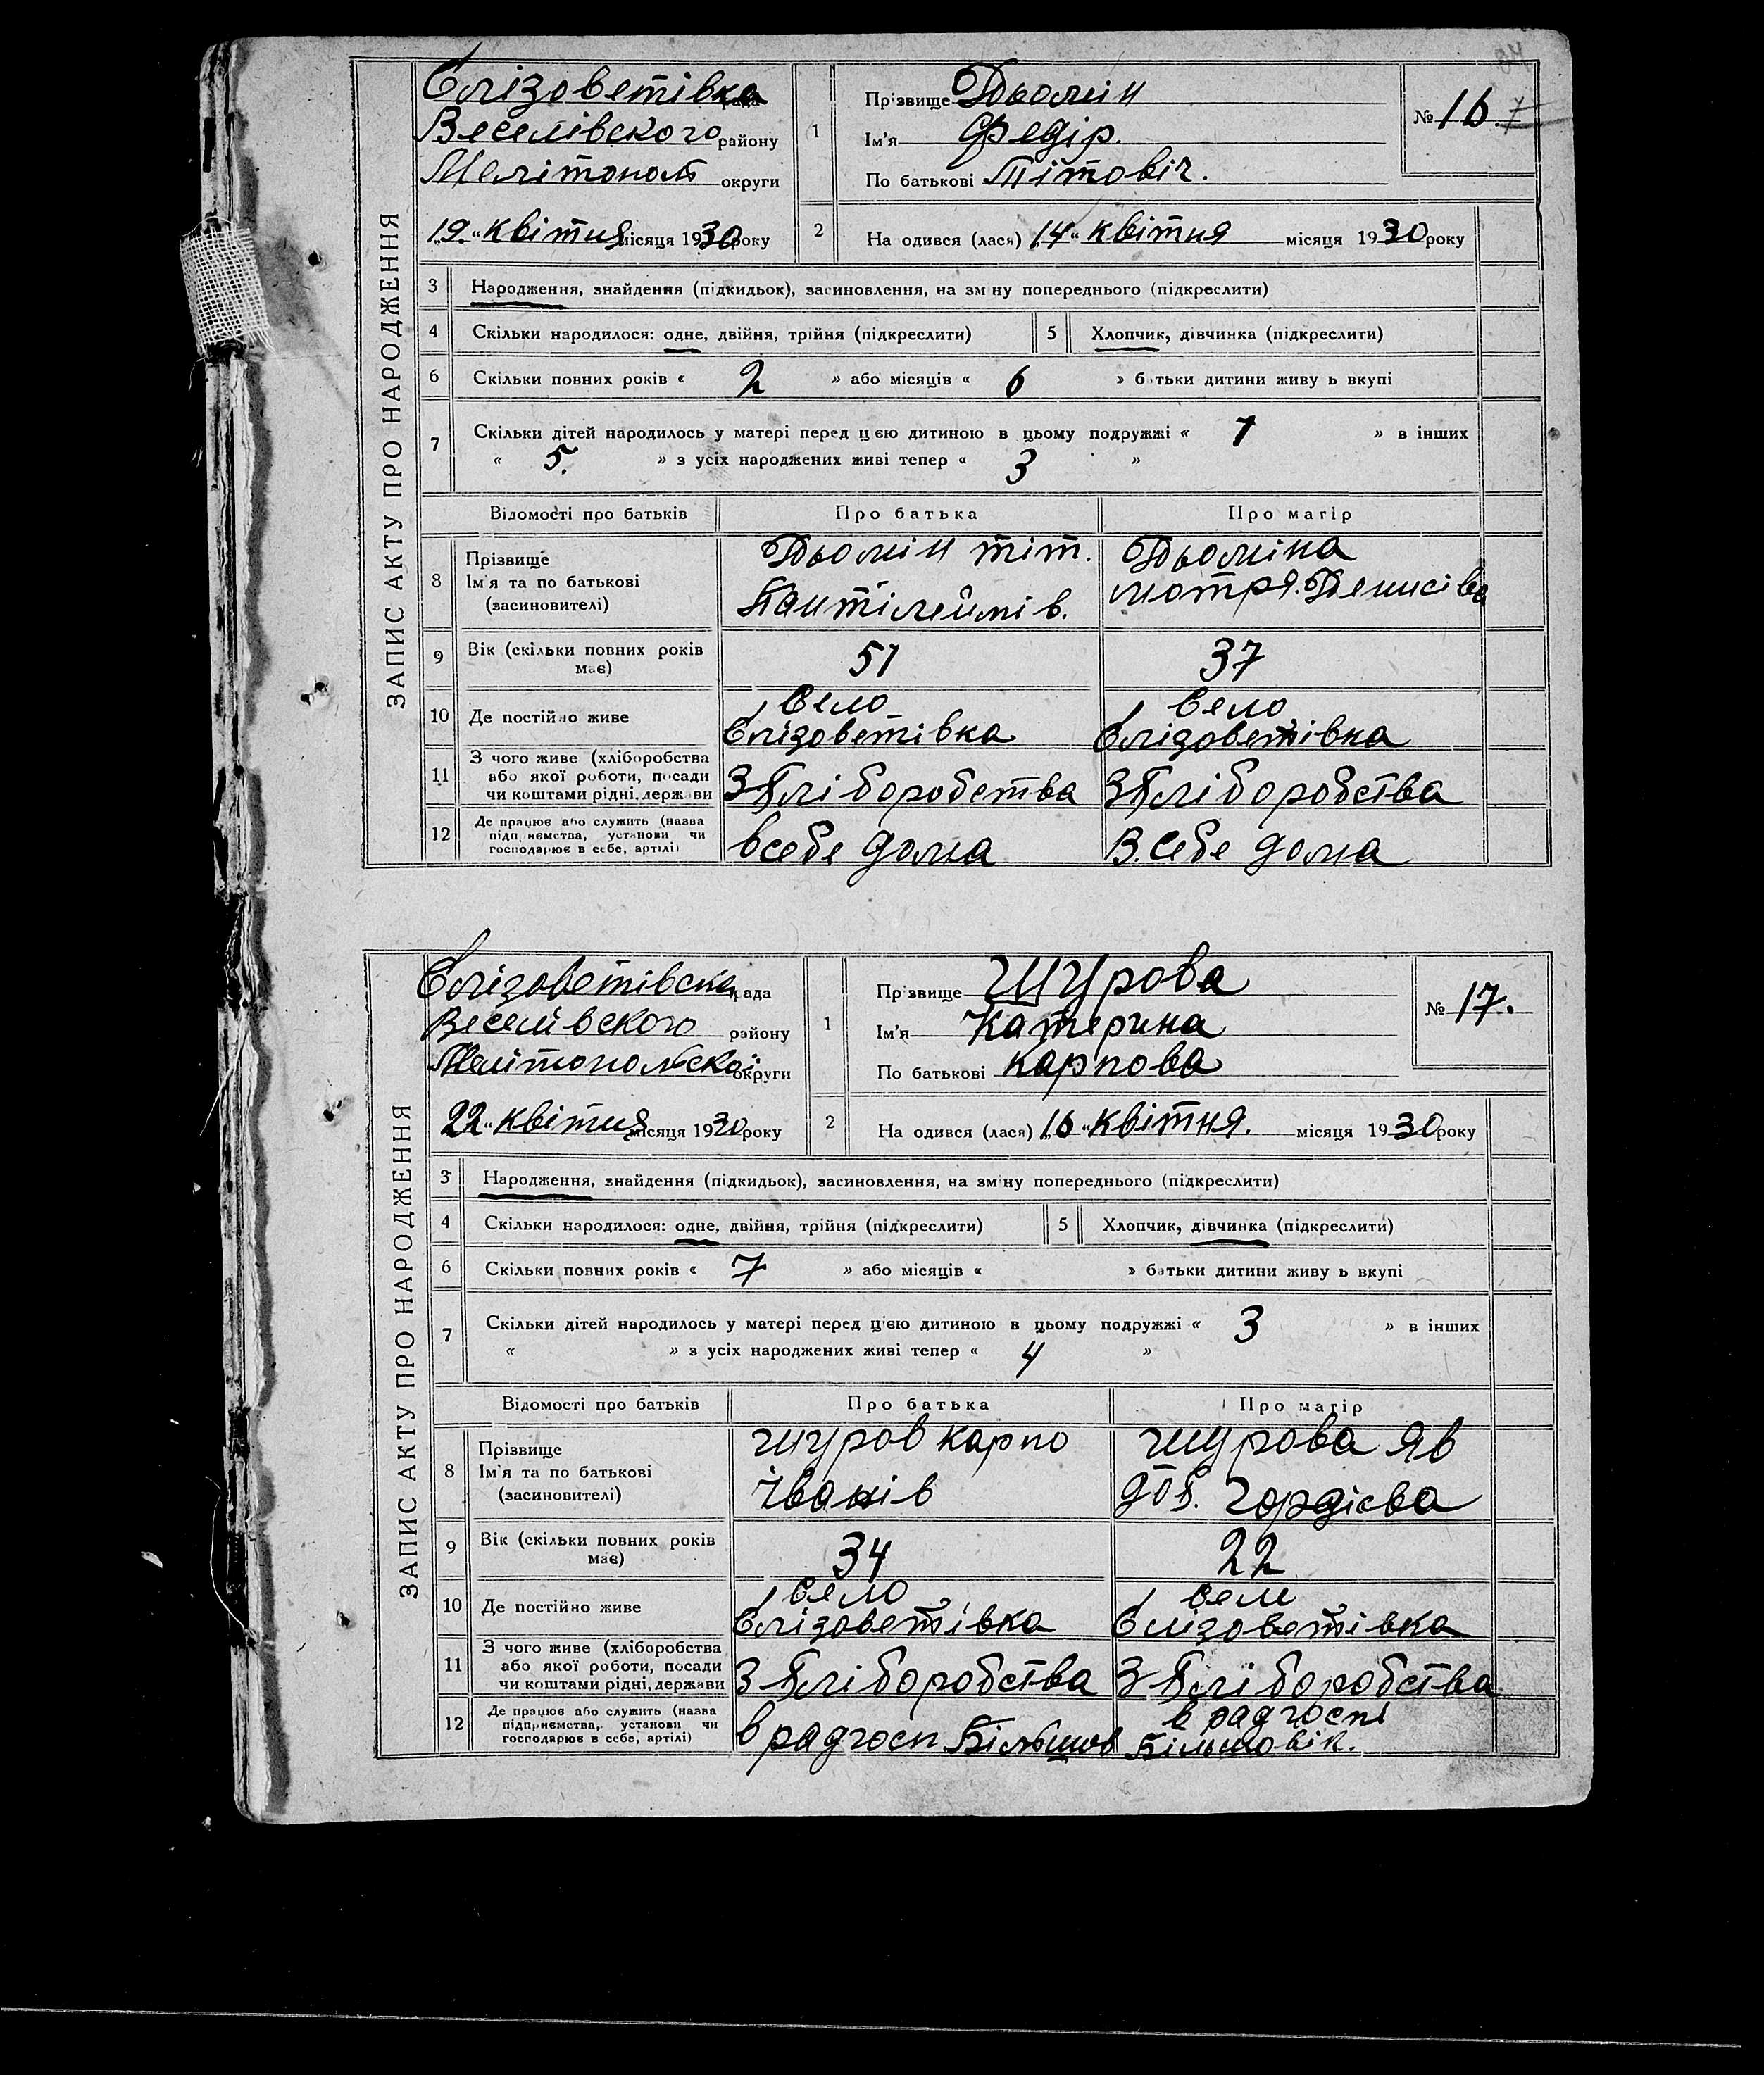 ЗАПИС АКТУ ПРО НАРОДЖЕННЯ
Єлізоветівка рада
Веселівского району
Мелітополь округи
„19.“ квітня місяця 1930 року
1
Прізвище Дьомін
Ім'я Федір.
По батькові Тітовіч.
№ 16.
2 На одився (лася) „14“ квітня місяця 1930 року
3 Народження, знайдення (підкидьок), засиновлення, на зм ну попереднього (підкреслити)
4 Скільки народилося: одне, двійня, трійня (підкреслити) 5 Хлопчик, дівчинка (підкреслити)
6 Скільки повних років « 2 » або місяців « 6 » б тьки дитини живу ь вкупі
7 Скільки дітей народилось у матері перед ц єю дитиною в цьому подружжі « 1 » в інших
« 5. » з усіх народжених живі тепер « 3 »
Відомості про батьків Про батька Про матір
8 Прізвище
Ім'я та по батькові
(засиновителі)
Дьомін тіт.
Пантілеймів.
Дьоміна
мотря. Денисівa
9 Вік (скільки повних років
має)
51 37
10 Де постійно живе
село
Єлізоветівка
село
Єлізоветівка
11 З чого живе (хліборобства
або якої роботи, посади
чи коштами рідні, держ ви
З Хліборобства З Хліборобства
12 Де працює або служить (назва
підп, иємства, установи чи
господарює в себе, артілі)
в себе дома В. Себе дома
ЗАПИС АКТУ ПРО НАРОДЖЕННЯ
Єлізоветівска рада
Веселівского району
Мелітопольскої округи
„22“ квітня місяця 1930 року
1
Пр звище Щурова
Ім'я Катерина
По батькові карпова
№ 17.
2 На одився (лася) „16“ квітня. місяця 1930 року
3 Народження, знайдення (підкидьок), засиновлення, на зм ну попереднього (підкреслити)
4 Скільки народилося: одне, двійня, трійня (підкреслити) 5 Хлопчик, дівчинка (підкреслити)
6 Скільки повних років « 7 » або місяців « » батьки дитини живу ь вкупі
7 Скільки дітей народилось у матері перед цією дитиною в цьому подружжі « 3 » в інших
« » з усіх народжених живі тепер « 4 »
Відомості про батьків Про батька Про матір
8 Прізвище
Ім'я та по батькові
(засиновителі)
щуров карпо
Іванів
щурова Яв
дох. Гордієва
9 Вік (скільки повних років
має)
34 22
10 Де постійно живе
село
Єлізоветівка
селі
Єлізоветівка
11 З чого живе (хліборобства
або якої роботи, посади
чи коштами рідні, держави
З Хліборобства З Хліборобства
12 Де працює або служить (назва
підприємства, установи чи
господарює в себе, артілі)
в радгосп Більшов
в радгоспі
Більшовік.